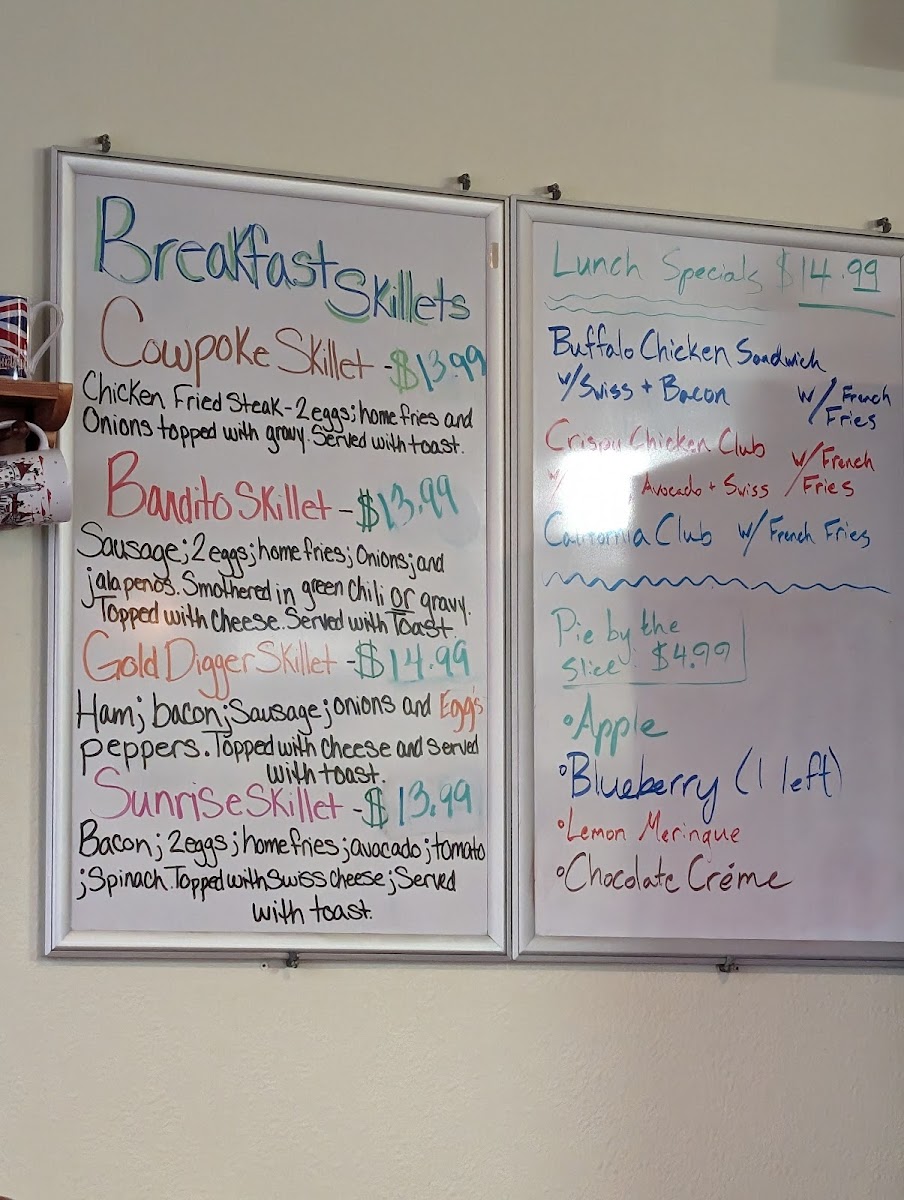 Breakfast
Skillets
Cowpoke Skillet - $13.99
Chicken Fried Steak - 2 eggs; home fries and
Onions topped with gravy. Served with toast.
Bandito Skillet - $13.99
Sausage; 2 eggs; home fries; Onions; and
jalapenos. Smothered in green Chili or gravy.
Topped with cheese. Served with Toast.
Gold Digger Skillet - $14.99
Ham; bacon; Sausage; onions and Egg's
peppers. Topped with cheese and served
with toast.
Sunrise Skillet - $13.99
Bacon; 2 eggs; home fries; avocado; tomato
; Spinach. Topped with Swiss cheese; Served
with toast.
Lunch Specials $14.99
Buffalo Chicken Sandwich
w/Swiss + Bacon w/ French
Fries
Crispy Chicken Club w/French
w/ Avocado + Swiss Fries
California Club w/ French Fries
Pie by the
slice: $4.99
• Apple
• Blueberry (1 left)
• Lemon Meringue
• Chocolate Créme